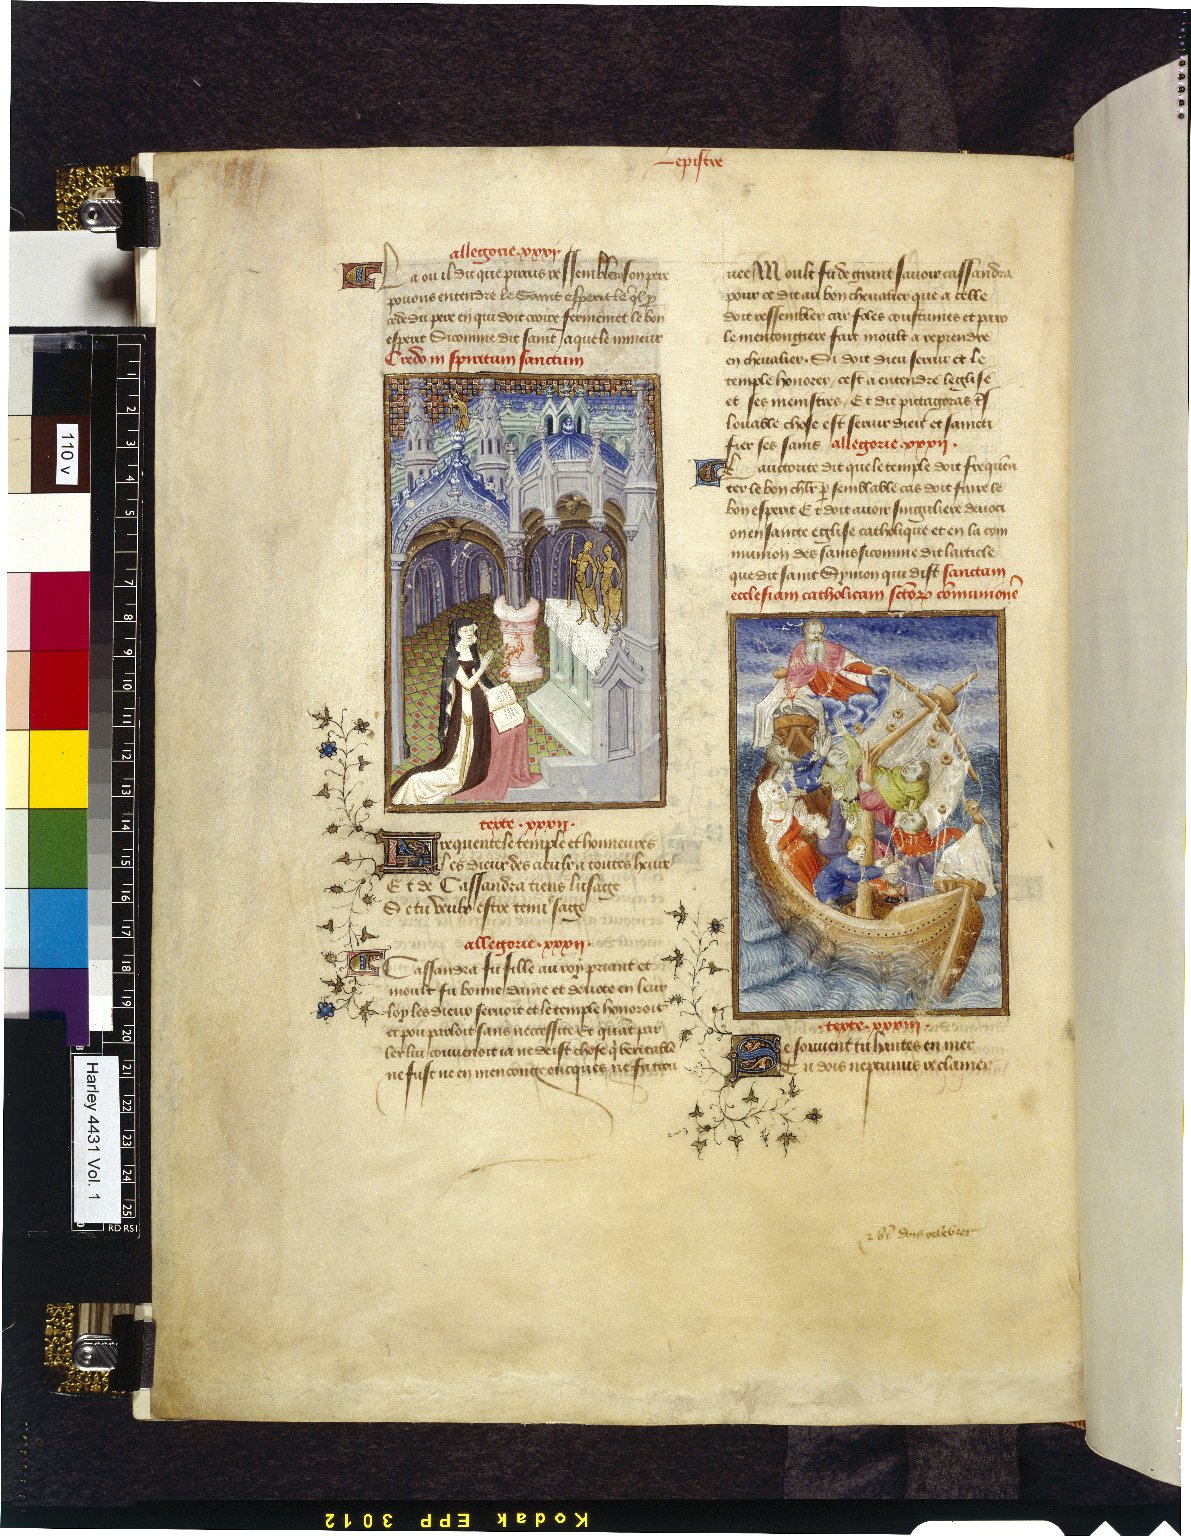 Lepistre
allegorie · xxxi ·
La ou il dit que pirrus ressemblera son pere
pouons entendre le Saint esperit le q̃l p
cede du pere en qui doit croire fermemẽt le bon
esperit Si comme dit saint Jaque le mineur
Credo in spiritum sanctum
texte · xxxii ·
Frequente le temple et honneures
Les dieux des cieulx a toutes heures
Et de Cassandra tiens lusage
Se tu veulx estre tenu sage
allegorie · xxxii ·
Cassandra fu fille au roy priant et
moult fu bonne dame et deuote en leur
loy les dieux seruoit et le temple honoroit
et pou parloit sans necessite Et quãt par
ler lui couuenoit ia ne deist chose q̃ veritable
ne fust ne en mencõge oncques ne fu trou
uee Moult fu de grant sauoir cassandra
pour ce dit au bon cheualier que a celle
doit ressembler car foles coustumes et paro
le mencongiere fait moult a reprendre
en cheualier · Si doit dieu seruir et le
temple honorer / cest a entendre leglise
et ses menistres / Et dit pictagoras t̃s
louable chose est seruir dieu et sancti
fier ses sains allegorie · xxxii ·
Lauctorite dit que le temple doit frequen
ter le bon chlr̃ p semblable cas doit faire le
bon esperit Et doit auoir singuliere deuoci
on en sainte eglise catholique et en la com
munion des sains si comme dit larticle
que dit saint Symon qui dist sanctam
ecclesiam catholicam sctõꝝ cõmunionẽ
texte · xxxiii ·
Se souuent tu hantes en mer
Tu dois neptunus reclamer
110 v
Harley 4431 Vol. 1
2
3
4
5
7
8
9
10
12
13
14
15
17
18
19
20
21
22
23
24
25
Kodak EPP 3012